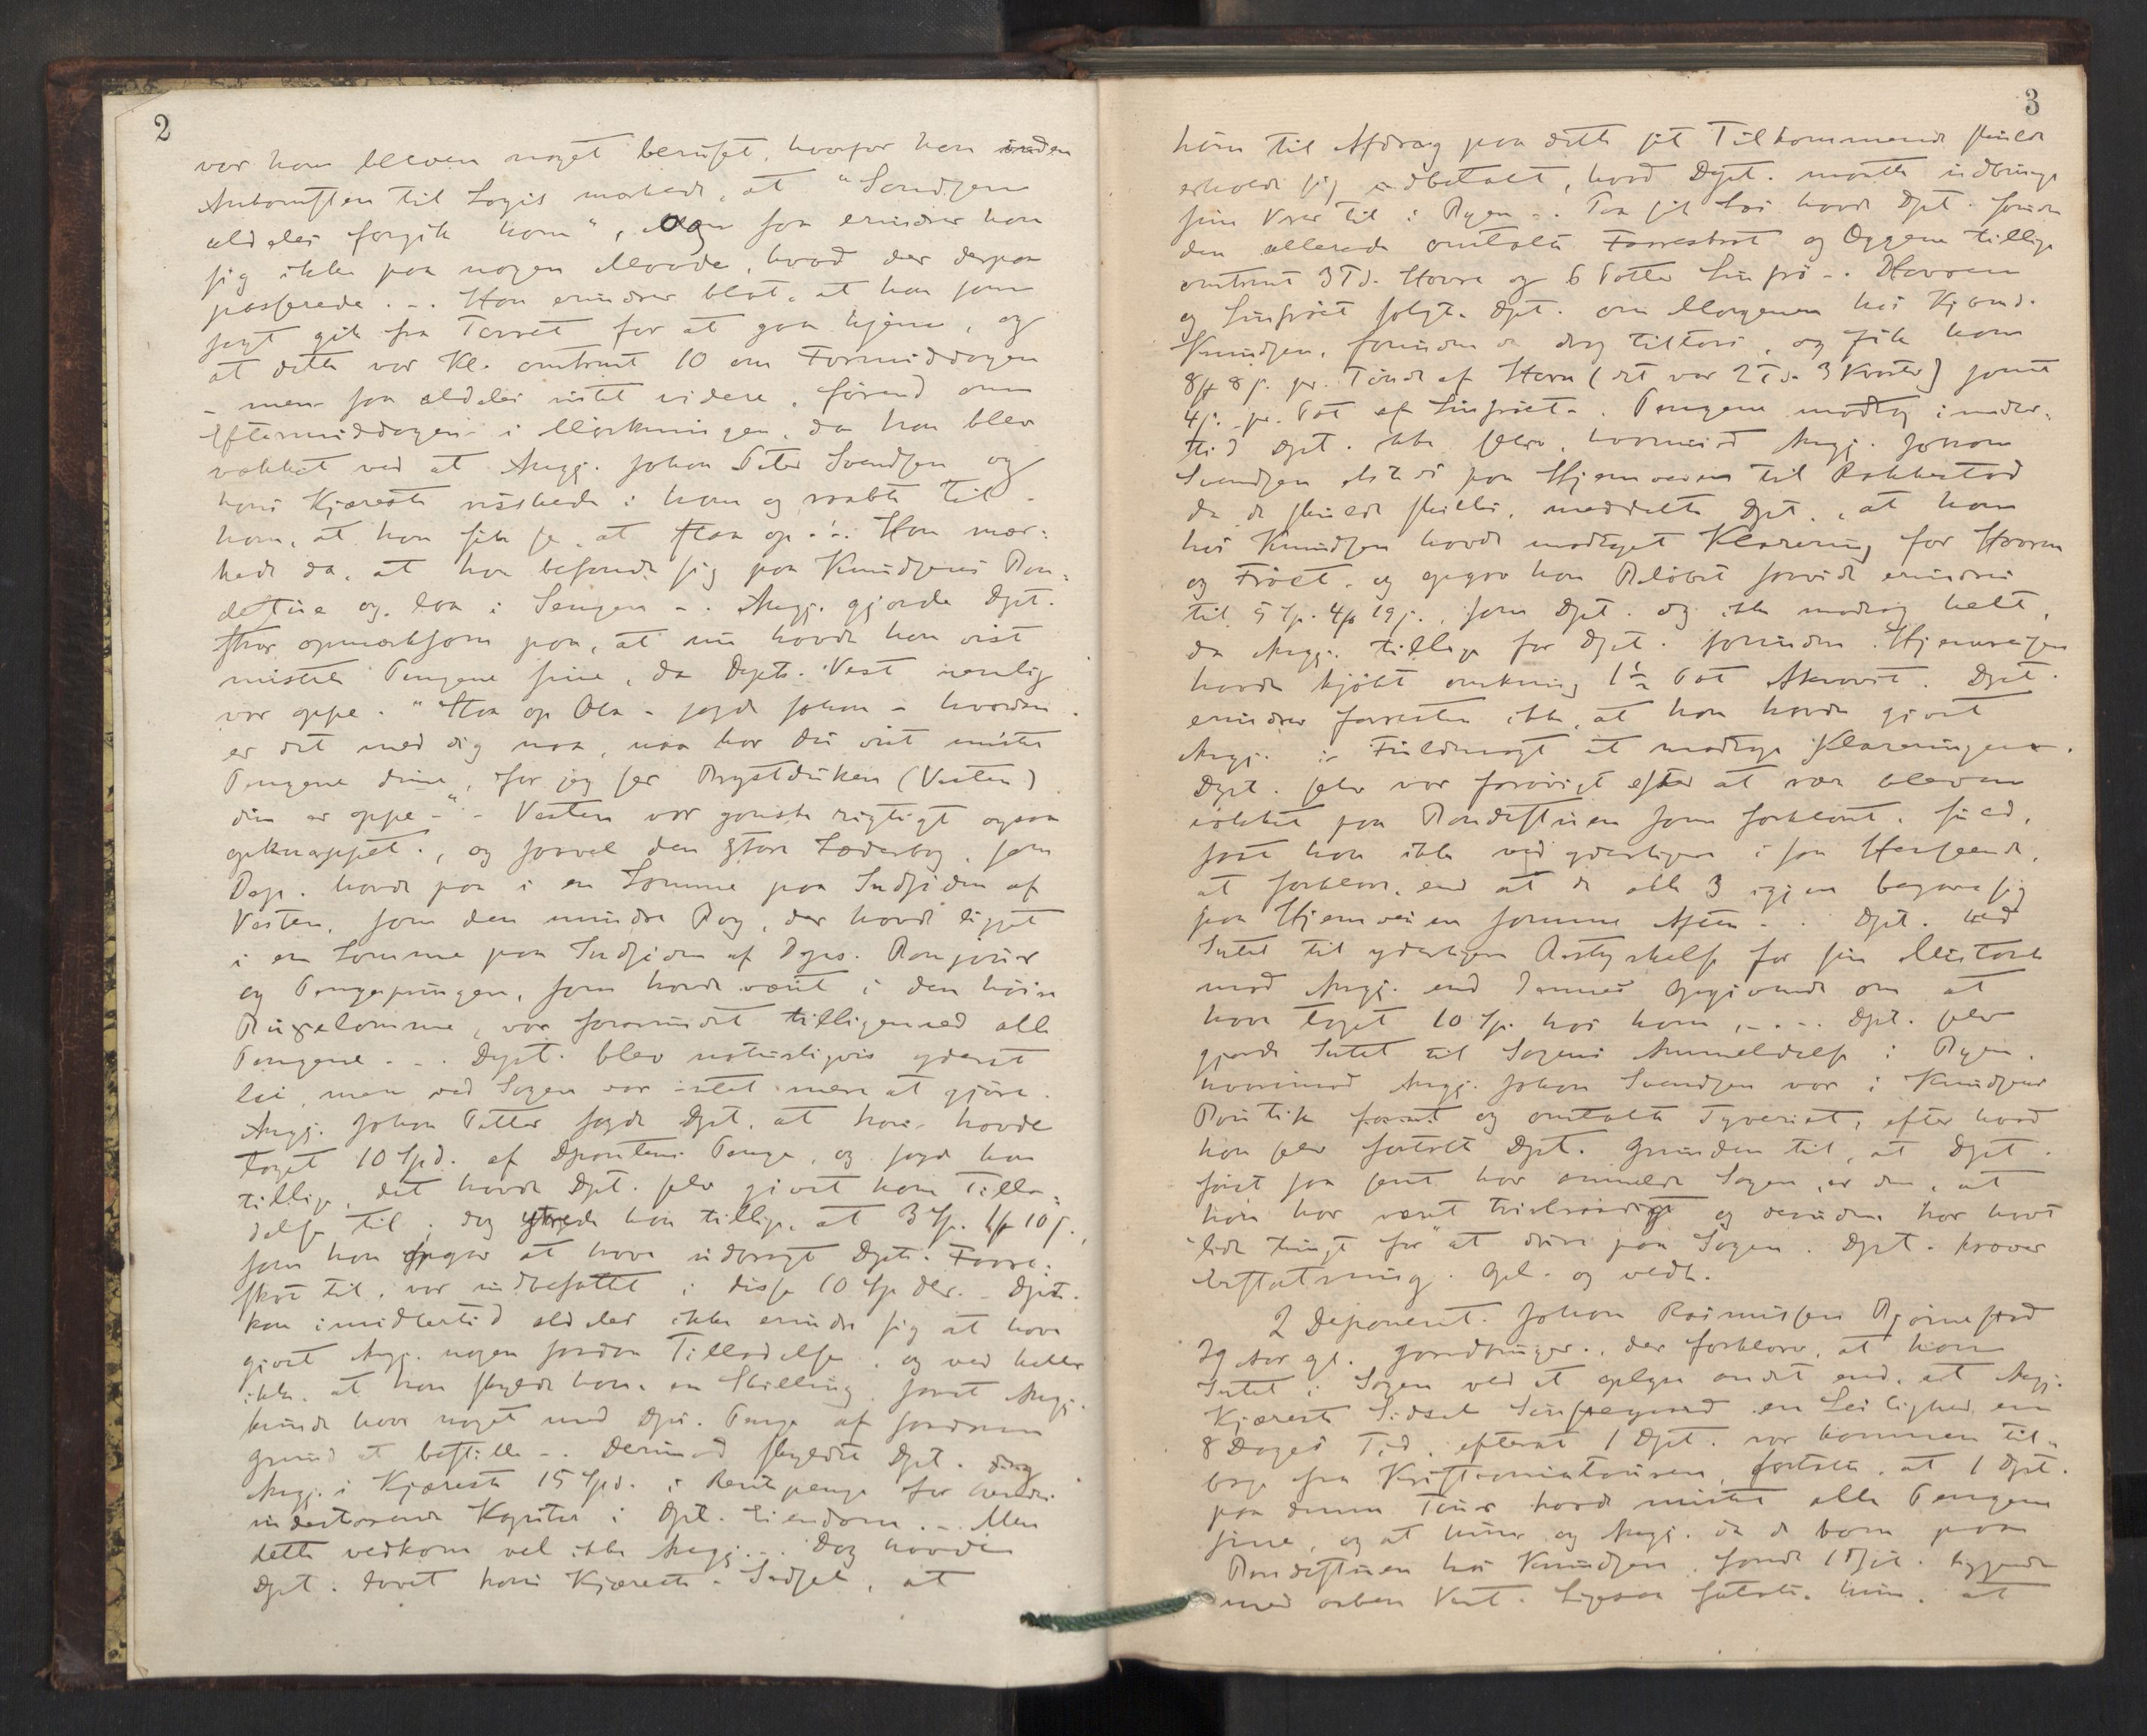 2
var han bleven noget beruset, hvorfor han inden
Ankomsten til Logis mærkede, at "Sandsen
aldeles forgik ham", og saa erindrer han
sig ikke paa nogen Maade, hvad der derpaa
passerede. -. Han erindrer blot, at han som
sagt gik fra Torvet for at gaa hjem, og
at dette var Kl. omtrent 10 om Formiddagen
- men saa aldeles intet videre, førend om
Eftermiddagen i Mørkningen, da han blev
vækket ved at Angj. Johan Peter Svendsen og
hans Kjæreste ruskede i ham og raabte til
ham, at han fik se at staa op. -. Han mær-
kede da, at han befandt sig paa Knudsens Bon-
destue og laa i Sengen -. Angj. gjorde Dpt.
strax opmærksom paa, at nu havde han vist
mistet Pengene sine, da Dpts. Vest nemlig
var oppe. "Staa op Ola - sagde Johan - hvordan
er det med dig naa, naa har du vist mistet
Pengene dine, for jeg ser Brystduken (Vesten)
din er oppe -" - Vesten var ganske rigtigt ogsaa
opknappet, og saavel den store Læderbog, som
Dep. havde paa i en Lomme paa Indsiden af
Vesten, som den mindre Bog, der havde ligget
i en Lomme paa Indsiden af Dpts.
og Pengepungen, som havde været i den høire
Buxelomme, var forsvundet tilligemed alle
Pengene -. Dpt. blev naturligvis yderst
lei, men ved Sagen var intet mere at gjøre.
Angj. Johan Petter sagde Dpt. at han havde
taget 10 Spd. af Deponentens Penge, og sagde han
tillige, det havde Dpt. selv givet ham Tilla-
delse til; dog ytrede han tillige, at 3 Sp. 1 # 10 s.,
som han opgav at have udbragt Dpts. Faare-
skrot til, var indbefattet i disse 10 Sp dlr. - Dpt.
kan imidlertid aldeles ikke erindre sig at have
givet Angj. nogen saadan Tilladelse, og ved heller
ikke, at han skyldte ham en Skilling, saa at Angj.
kunde have noget med Dpts. Penge af saadan
Grund at bestille -. Derimod skyldte Dpt. dog
Angj.s Kjæreste 15 Spd. i Rentepenge for hendes
indestaaende Kapital i Dpts. Eiendom. -. Men
dette vedkom vel ikke Angj. -. Dog havde
Dpt. lovet hans Kjæreste - Sidsel, at
3
hun til Afdrag paa dette sit Tilkommende skulde
erholde sig udbetalt, hvad Dpt. maatte indbringe
sine Varer til i Byen -. Paa sit Læs havde Dpt. foruden
den allerede omtalte Faareskrot og Æggene tillige
omtrent 3 Td. Havre og 6 Potter Linfrø -. Havren
og Linfrøet solgte Dpt. om Morgenen hos Kjøbmd.
Knudsen, foruden de drog tiltorvs, og fik han
8 # 8 s. pr. Tønde af Havre (det var 2 Td. 3 Kvarter) samt
4 s. pr. Pot af Linfrøet -. Pengene modtog imidler-
tid Dpt. ikke selv, hvorimod Angj. Johan
Svendsen altid paa Hjemveien til Rakkestad
da de skulde skilles, meddelte Dpt., at han
hos Knudsen havde modtaget Klarering for Havren
og Frøet, og opgav han Beløbet saavidt erindres
til 5 Sp. 4 # 19 s., som Dpt. dog ikke modtog helt,
da Angj. tillige for Dpt. foruden Hjemreisen
havde kjøbt omkring 1½ Pot Akevvit. Dpt.
erindrer forresten ikke, at han havde givet
Angj. Fuldmagt at modtage Klareringen.
Dpt. selv var forøvrigt efter at være bleven
vækket paa Bondestuen som forklaret, fuld,
saa at han ikke ved yderligere i saa Henseende,
at forklare, end at de alle 3 igjen begave sig
paa Hjemveien samme Aften -. Dpt. ved
Intet til yderligere Bestyrkelse for sin Mistanke
mod Angj. end dennes Opgivende om at
have taget 10 Sp. hos ham, -.-. Dpt. selv
gjorde Intet til Sagens Anmeldelse i Byen,
hvorimod Angj. Johan Svendsen var i Knudsens
Boutik og omtalte Tyveriet, efter hvad
han selv fortalte Dpt. Grunden til, at Dpt.
først saa sent har anmeldt Sagen, er den, at
han har været tvivlraadigt og desuden har havt
lidt tungt for at drive paa Sagen. Dpt. krever
Erstatning. Opl. og vedt.
2 Deponent. Johan Rasmussen Bjørnestad
29 Aar gl. Gaardbruger, der forklarer, at han
Intet i Sagen ved at oplyse andet end, at Angj.
Kjæreste Sidsel en Leilighed en
8 Dages Tid, efterat 1 Dpt. var kommen til-
bage fra Kristianiatouren, fortalte, at 1 Dpt.
paa denne Tour havde mistet alle Pengene
sine, og at hun og Angj. da de kom paa
Bondestuen hos Knudsen, fandt 1 Dpt. liggende
med aaben Vest. Ligesaa fortalte hun, at